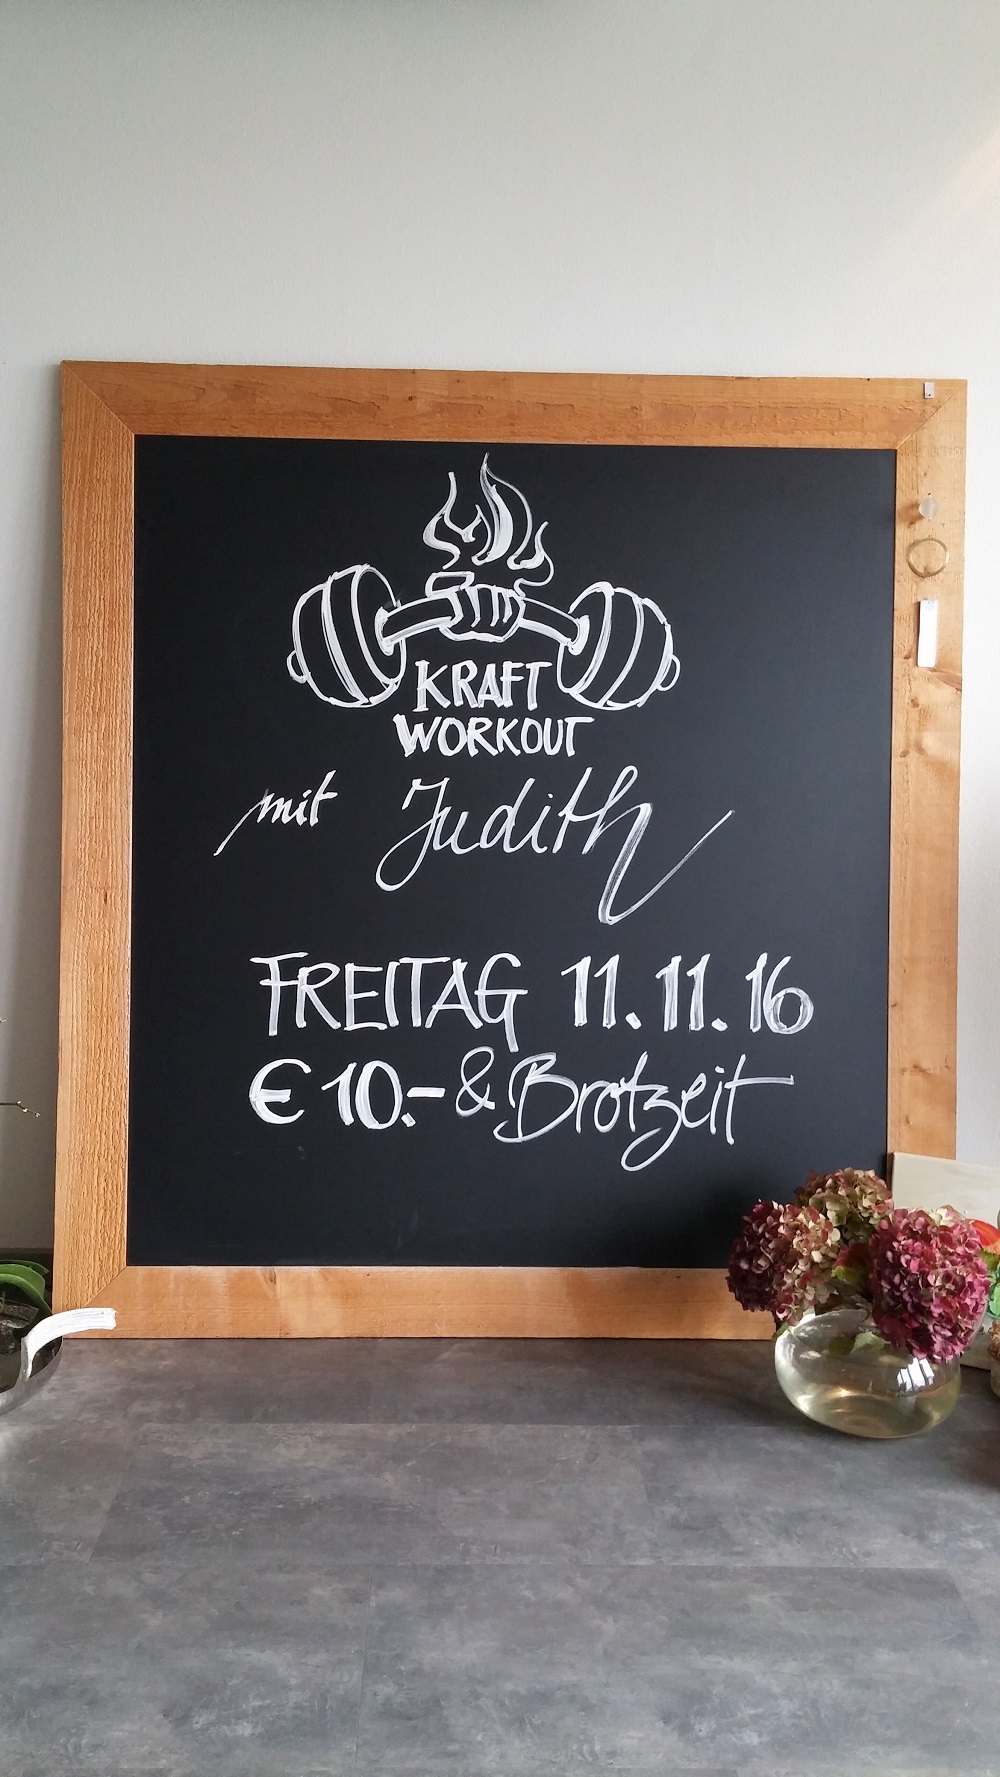 KRAFT
WORKOUT
mit Judith
FREITAG 11.11.16
€ 10.- & Brotzeit